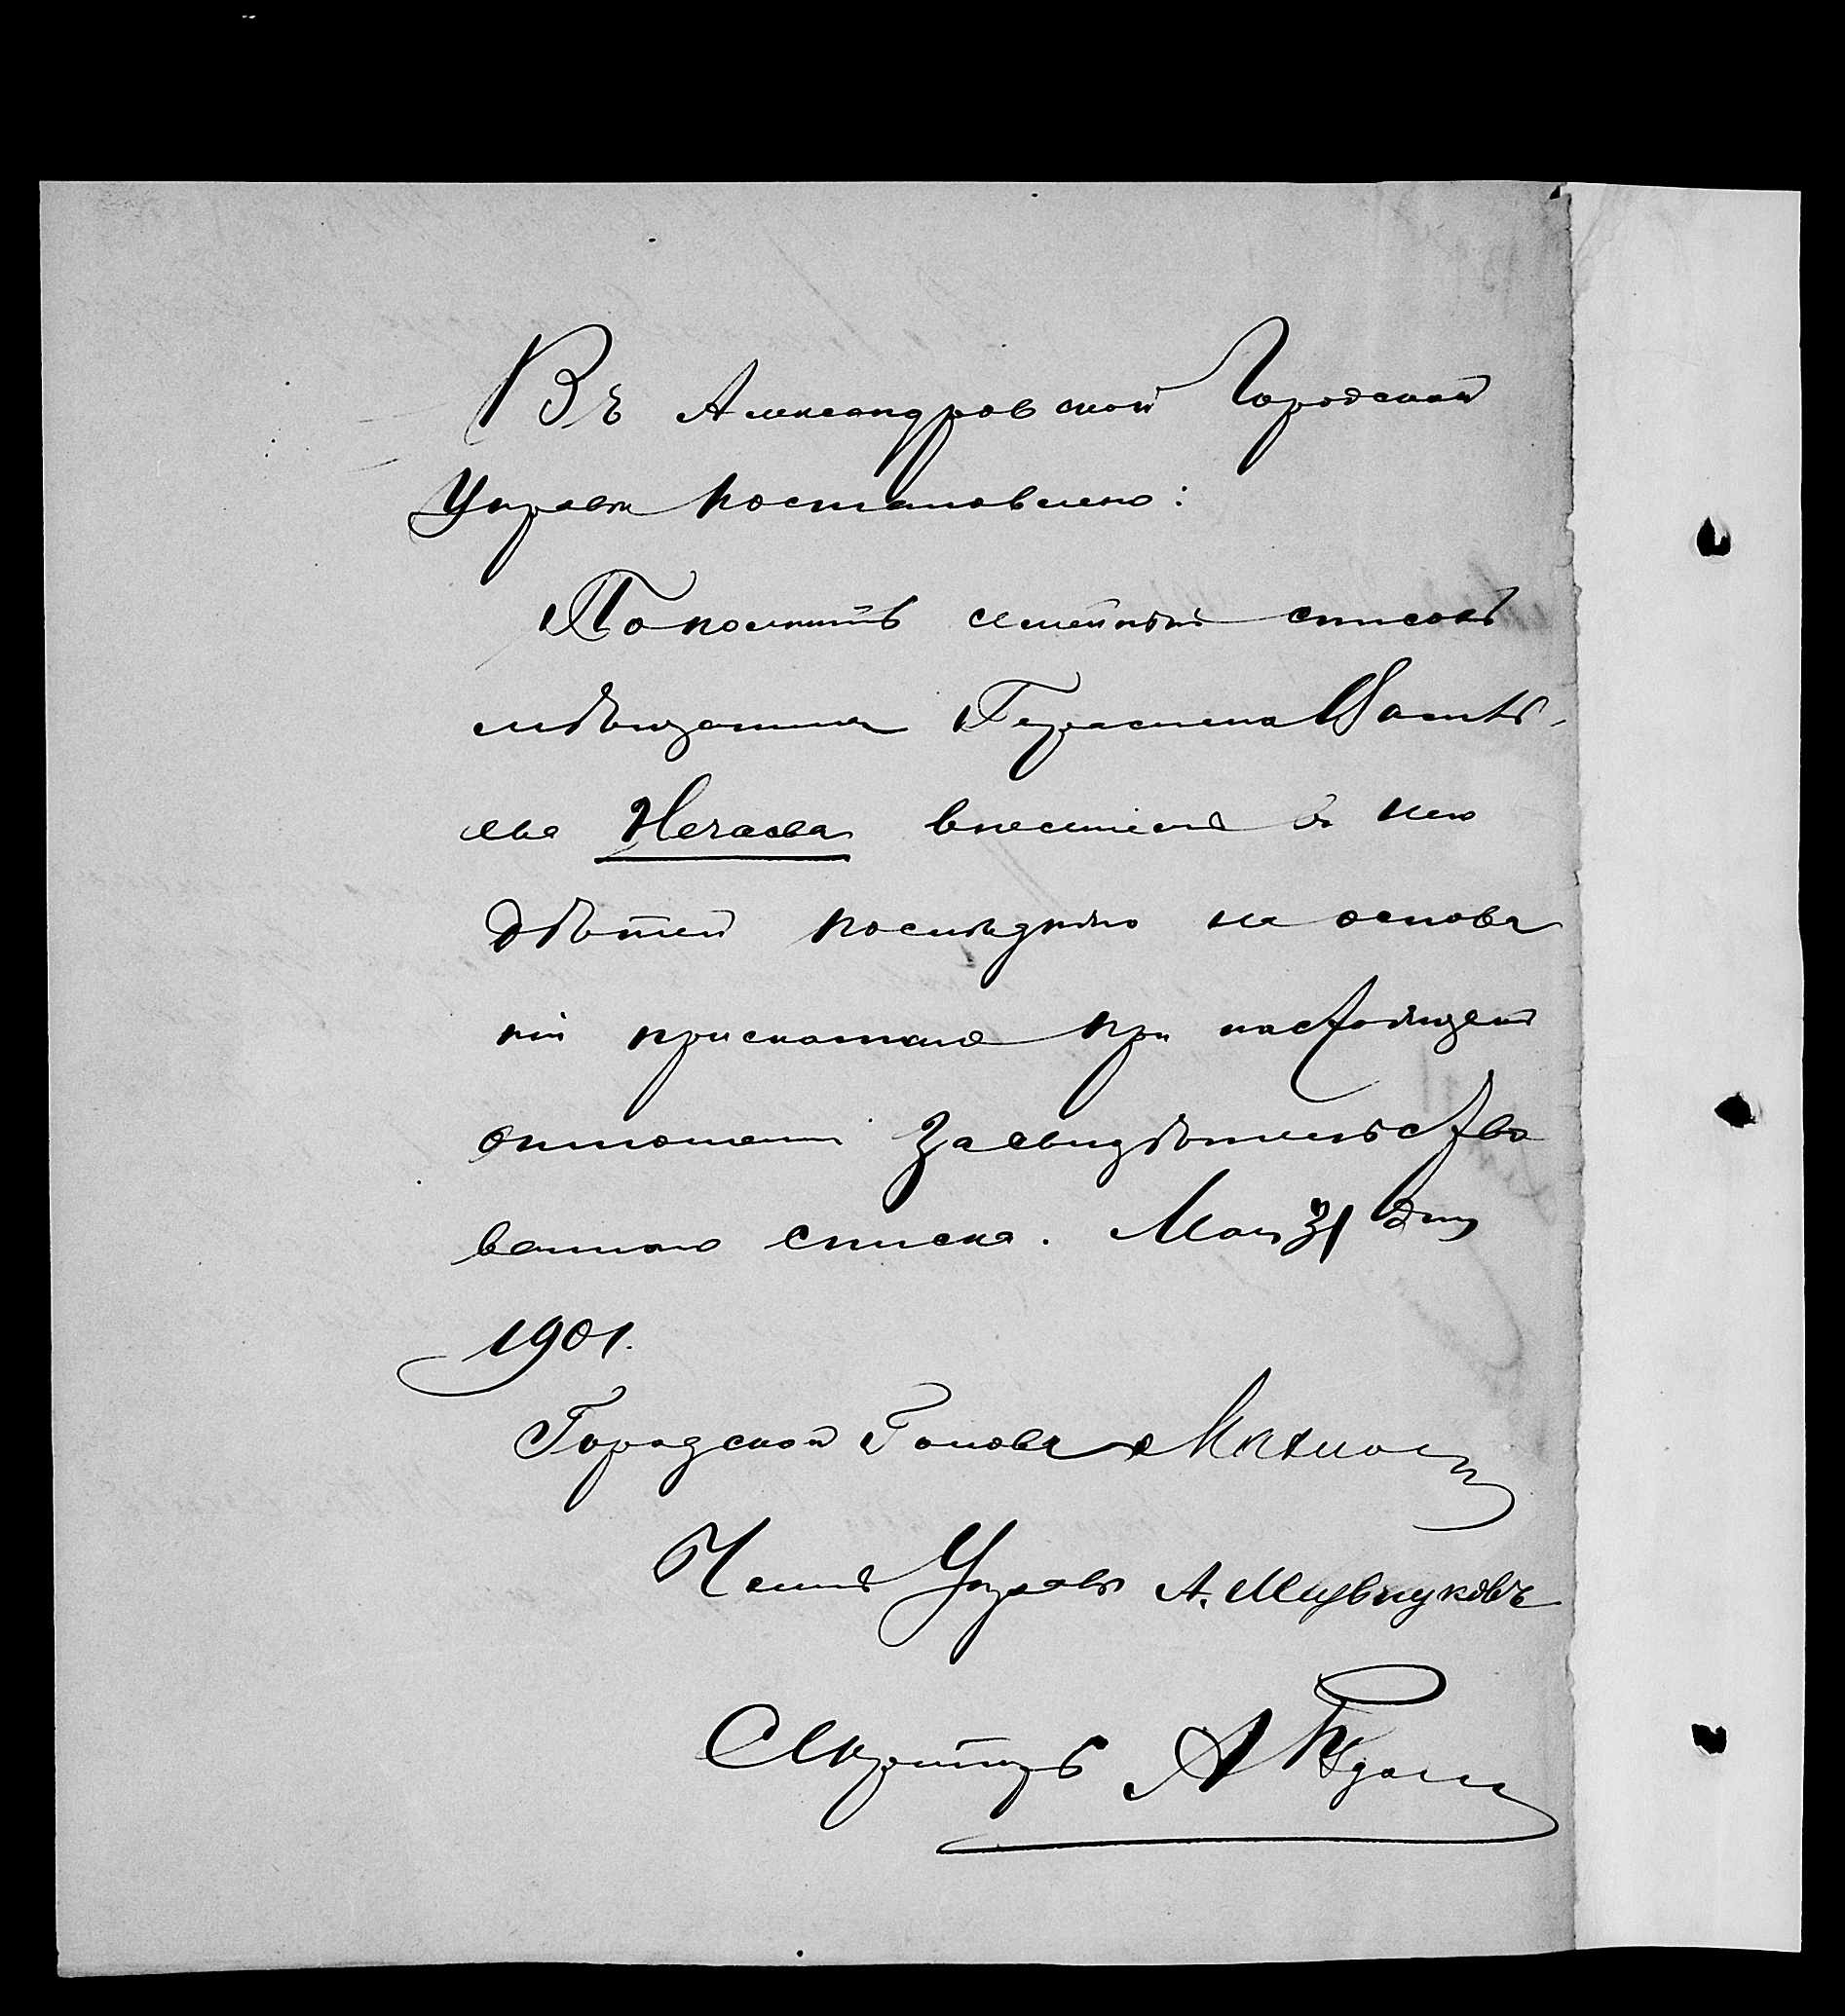 Въ Александровской Городской
Управѣ постановлено:
Пополнить семейный списокъ
мѣщанина Герасима Василь-
ева Нечаева внесеніемъ въ него
дѣтей послѣдняго на основа
ніи присланнаго при настоящемъ
отношеніи засвидѣтельство
ваннаго списка. Мая 31 дня
1901.
Городской Голова
Членъ Управы А.
Секретарь А